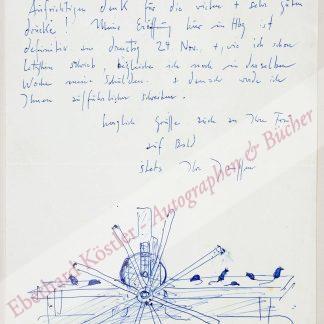 Aufrichtigen Dank für die vielen + sehr guten
Drucke! Meine Eröffnung hier in Hbg ist
definitiv am Dienstag 24 Nov. + wie ich schon
schrieb, begleiche ich noch in derselben
Woche meine Schulden. + danach werde ich
Ihnen ausführlicher schreiben.
herzliche Grüße auch an Ihre Frau
auf Bald
stets Ihr
Eberhard Köstler - Autographen & Bücher